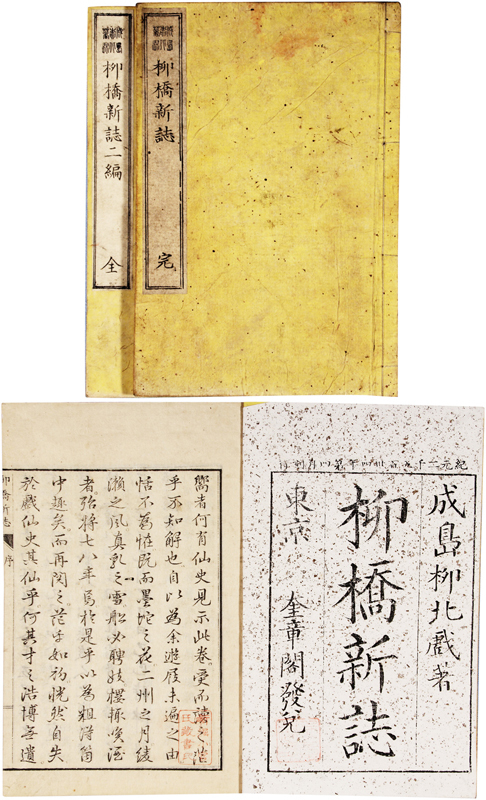 柳橋新誌
完
柳橋新誌二編
全
紀元二千五百卅四年第四月刻
成島柳北戲著
柳橋新誌
東京 奎章閣發兌
嚮者何有仙史見示此卷受而讀之茫
乎不知解也自以為余遊屐未遍之由
恬不為怪既而墨坨之花二州之月綾
瀬之風真乳之雪船必聘妓樓輙喚酒
者殆將七八年焉於是乎以為粗得箇
中趣矣而再閱之茫乎如初恍然自失
於戲仙史其仙乎何其才之浩博無遺
柳橋新志 序